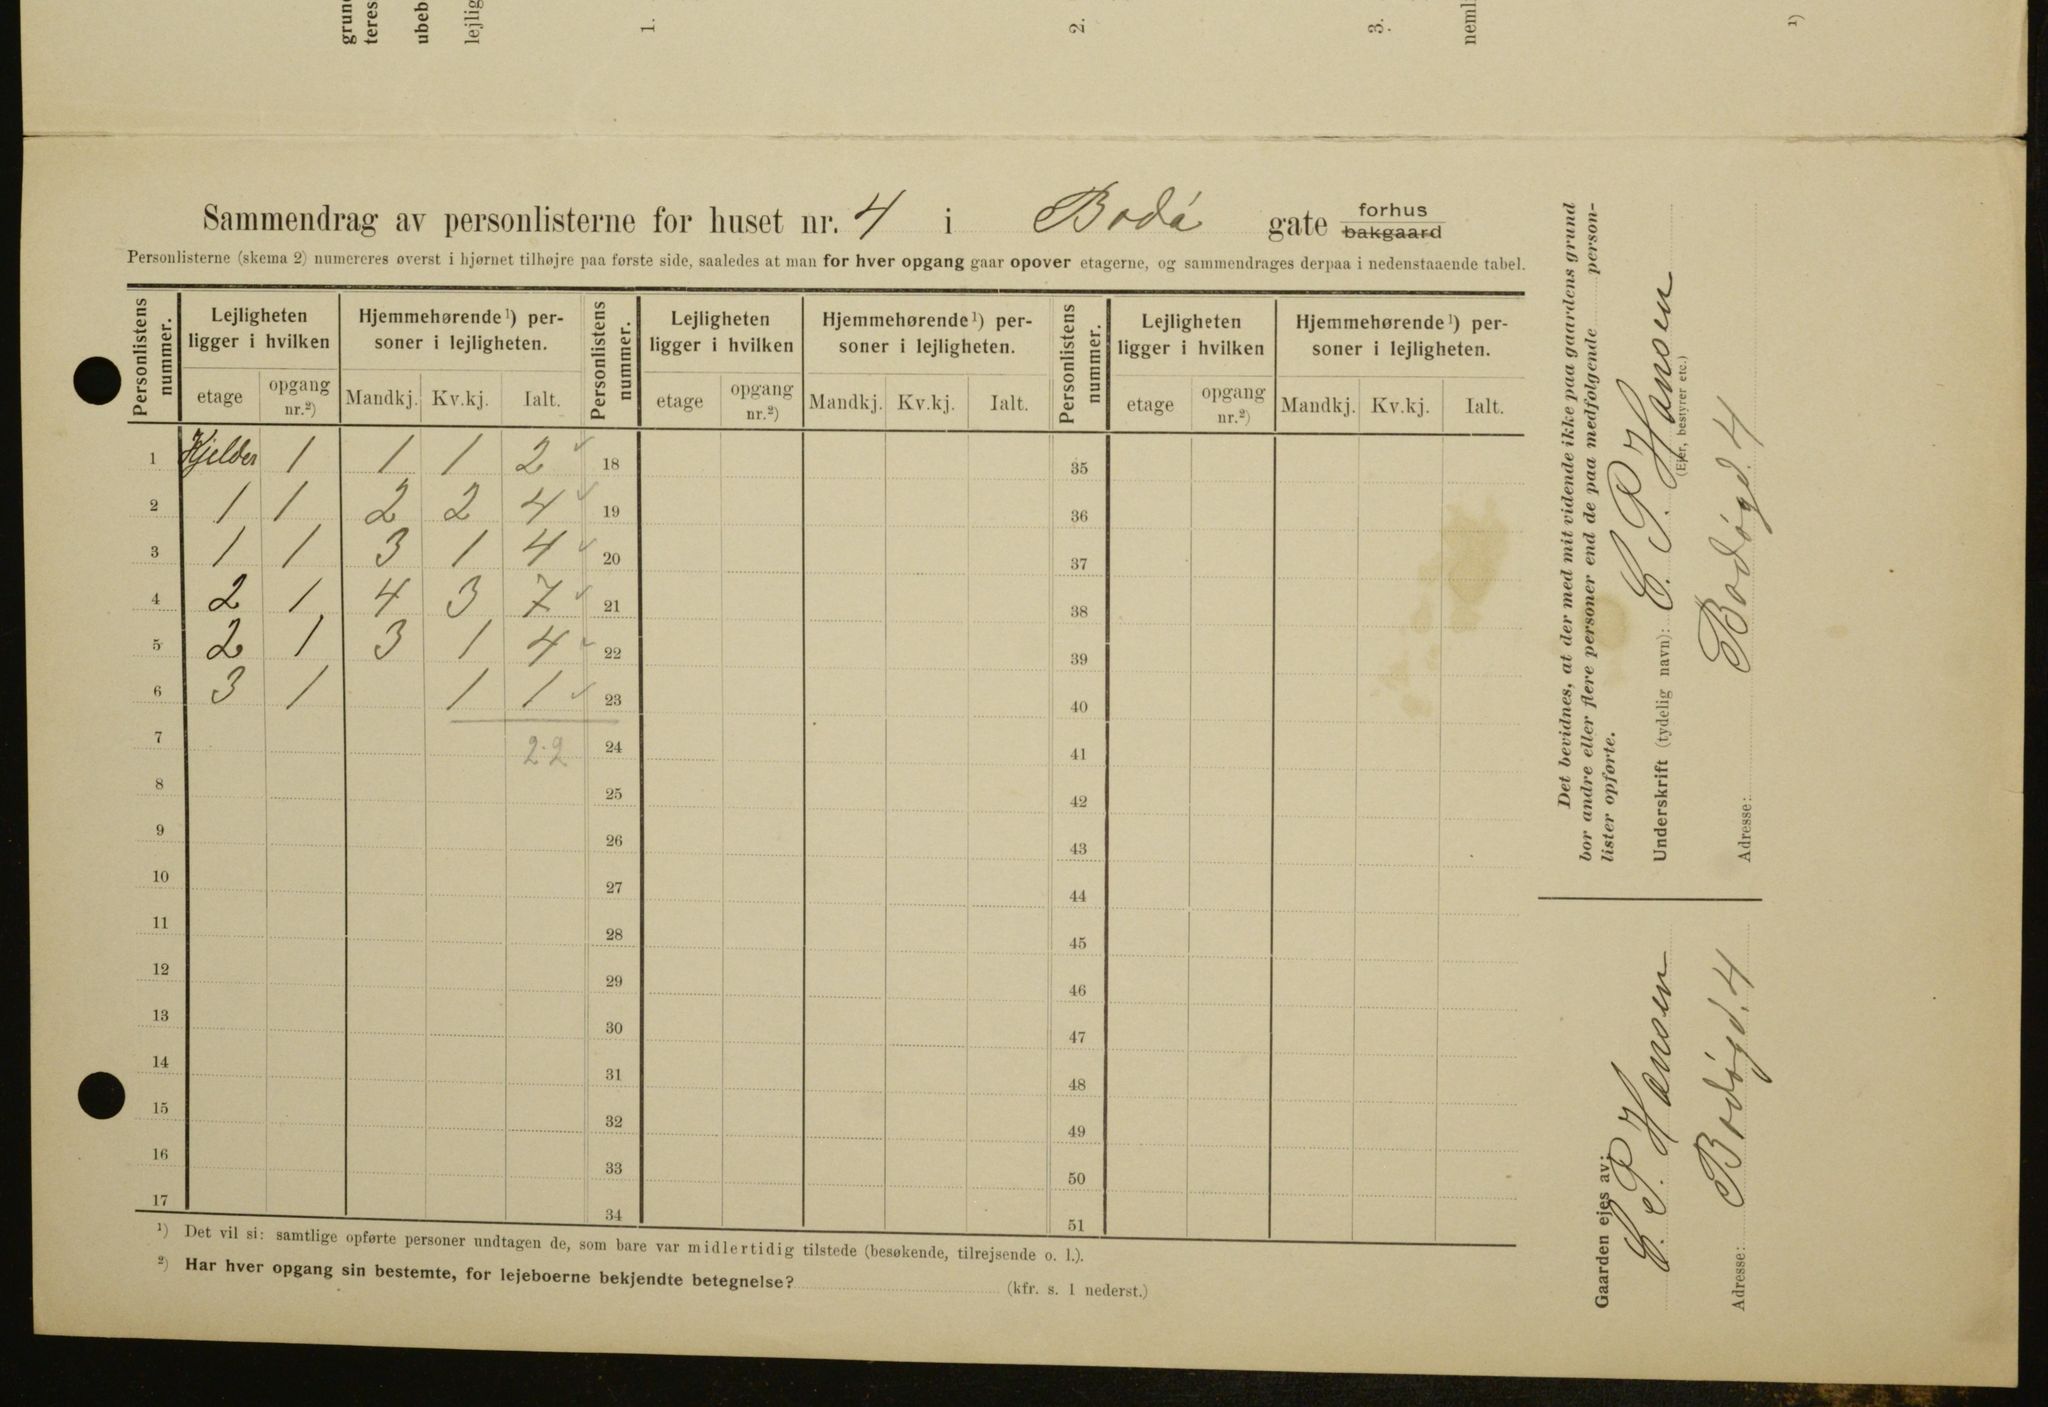 grun
teres
ubeb
lejlig
1.
2.
3.
neml
1)
Sammendrag av personlisterne for huset nr. 4 i Bodó gate forhus
bakgaard
Personlisterne (skema 2) numereres øverst i hjørnet tilhøjre paa første side, saaledes at man for hver opgang gaar opover etagerne, og sammendrages derpaa i nedenstaaende tabel.
Personlistens nummer. Lejligheten ligger i hvilken Hjemmehørende¹) personer i lejligheten. Personlistens nummer. Lejligheten ligger i hvilken Hjemmehørende¹) personer i lejligheten. Personlistens nummer. Lejligheten ligger i hvilken Hjemmehørende¹) personer i lejligheten.
etage opgang nr.²) Mandkj. Kv.kj. Ialt. etage opgang nr.²) Mandkj. Kv.kj. Ialt. etage opgang nr.²) Mandkj. Kv.kj. Ialt.
1 Kjelder 1 1 1 2 ✓ 18 35
2 1 1 2 2 4 ✓ 19 36
3 1 1 3 1 4 ✓ 20 37
4 2 1 4 3 7 ✓ 21 38
5 2 1 3 1 4 ✓ 22 39
6 3 1 1 1 ✓ 23 40
7 22 24 41
8 25 42
9 26 43
10 27 44
11 28 45
12 29 46
13 30 47
14 31 48
15 32 49
16 33 50
17 34 51
¹) Det vil si: samtlige opførte personer undtagen de, som bare var midlertidig tilstede (besøkende, tilrejsende o. l.).
²) Har hver opgang sin bestemte, for lejeboerne bekjendte betegnelse? (kfr. s. 1 nederst.)
Det bevidnes, at der med mit vidende ikke paa gaardens grund
bor andre eller flere personer end de paa medfølgende person-
lister opførte.
Underskrift (tydelig navn): E. P. Hansen
(Ejer, bestyrer etc.)
Adresse: Bodøgd. 4
Gaarden ejes av:
E. P. Hansen
Adresse: Bodøgd. 4